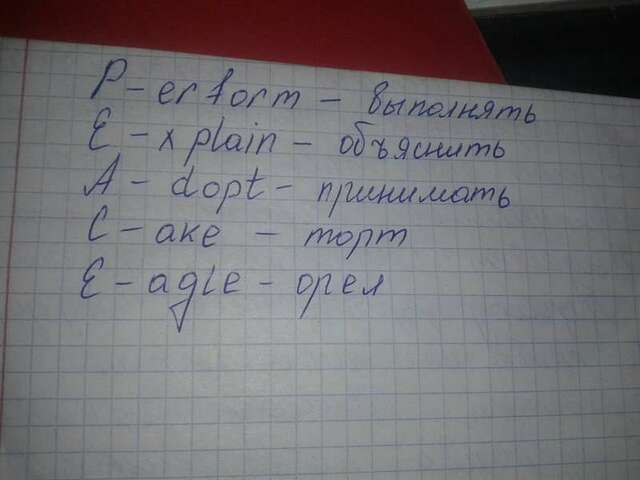 P-erform - выполнять
E-xplain - объяснить
A-dopt - принимать
C-ake - торт
E-agle - орел